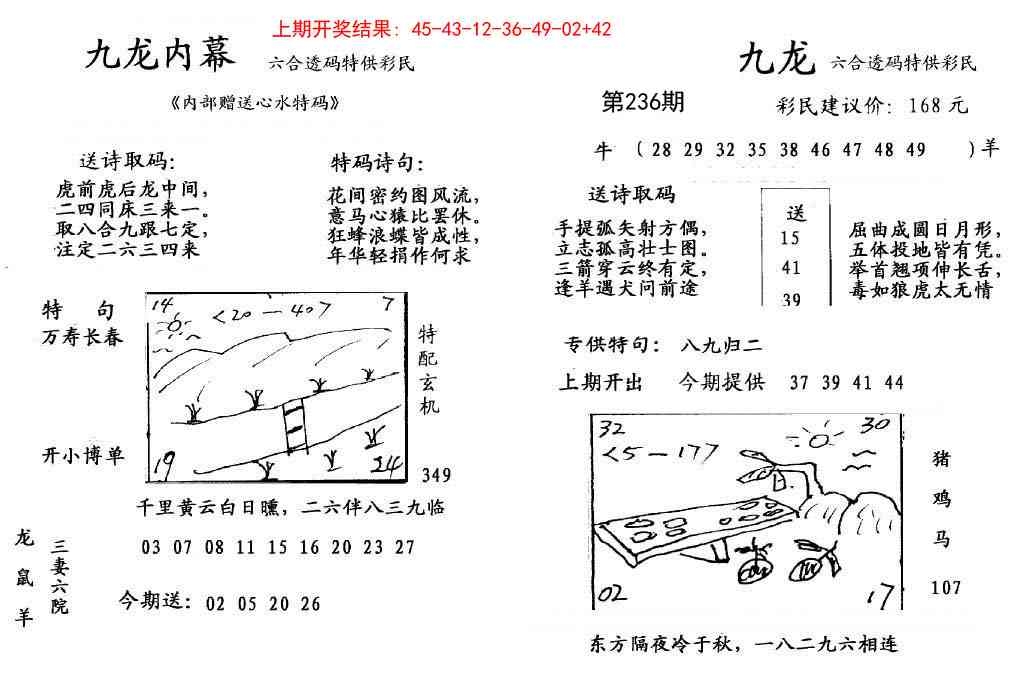 上期开奖结果：45-43-12-36-49-02+42
九龙内幕 六合透码特供彩民
《内部赠送心水特码》
送诗取码：
虎前虎后龙中间，
二四同床三来一。
取八合九跟七定，
注定二六三四来
特码诗句：
花间密约图风流，
意马心猿比罢休。
狂蜂浪蝶皆成性，
年华轻捐作何求
特 句
万寿长春
开小博单
14 7
<20-40>
19 24
特配玄机
349
千里黄云白日曛，二六伴八三九临
龙鼠羊
三妻六院
03 07 08 11 15 16 20 23 27
今期送：02 05 20 26
九龙 六合透码特供彩民
第236期 彩民建议价：168元
牛 （28 29 32 35 38 46 47 48 49 ）羊
送诗取码
手提弧矢射方偶，
立志孤高壮士图。
三箭穿云终有定，
逢羊遇犬问前途
送
15
41
39
屈曲成圆日月形，
五体投地皆有凭。
举首翘项伸长舌，
毒如狼虎太无情
专供特句： 八九归二
上期开出 今期提供 37 39 41 44
32 30
<5-17>
02 17
猪
鸡
马
107
东方隔夜冷于秋，一八二九六相连